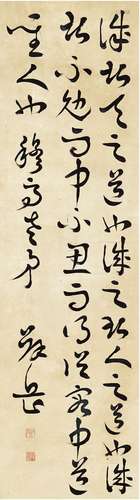 誠者天之道也誠之者人之道也誠
者不勉而中不思而得從容中道
聖人也